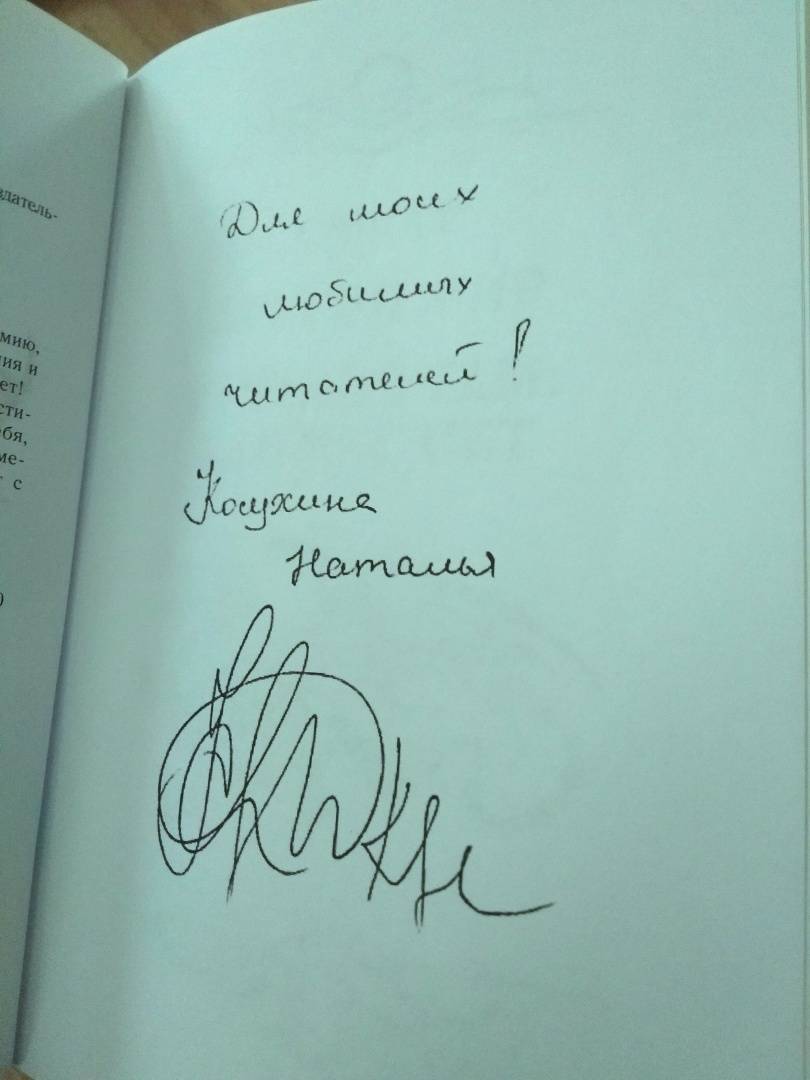 здатель-
мию,
ния и
ет!
сти-
ебя,
ме-
т с
)
Для моих
любимых
читателей!
Косухина
Наталья